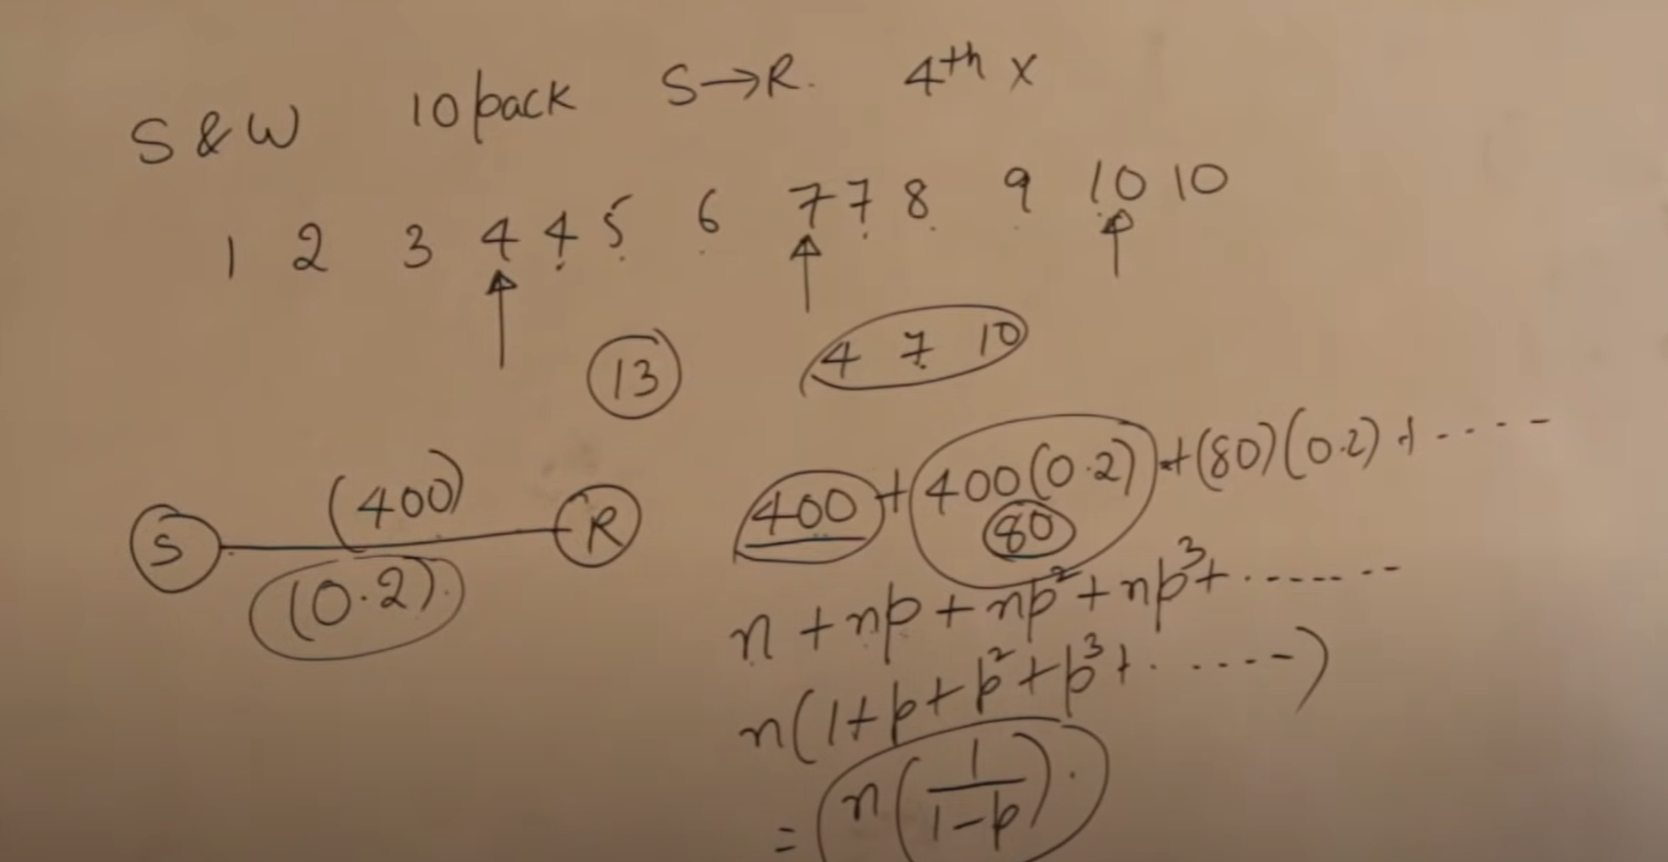 S & W 10 pack S→R. 4th x
1 2 3 4 4 5 6 7 7 8 9 10 10
13 4 7 10
(400) 400 + 400(0.2) + (80)(0.2) + ....
S R 80
(0.2) n + np + np² + np³ + .......
n(1+p+p²+p³+......)
= n(1/(1-p)).